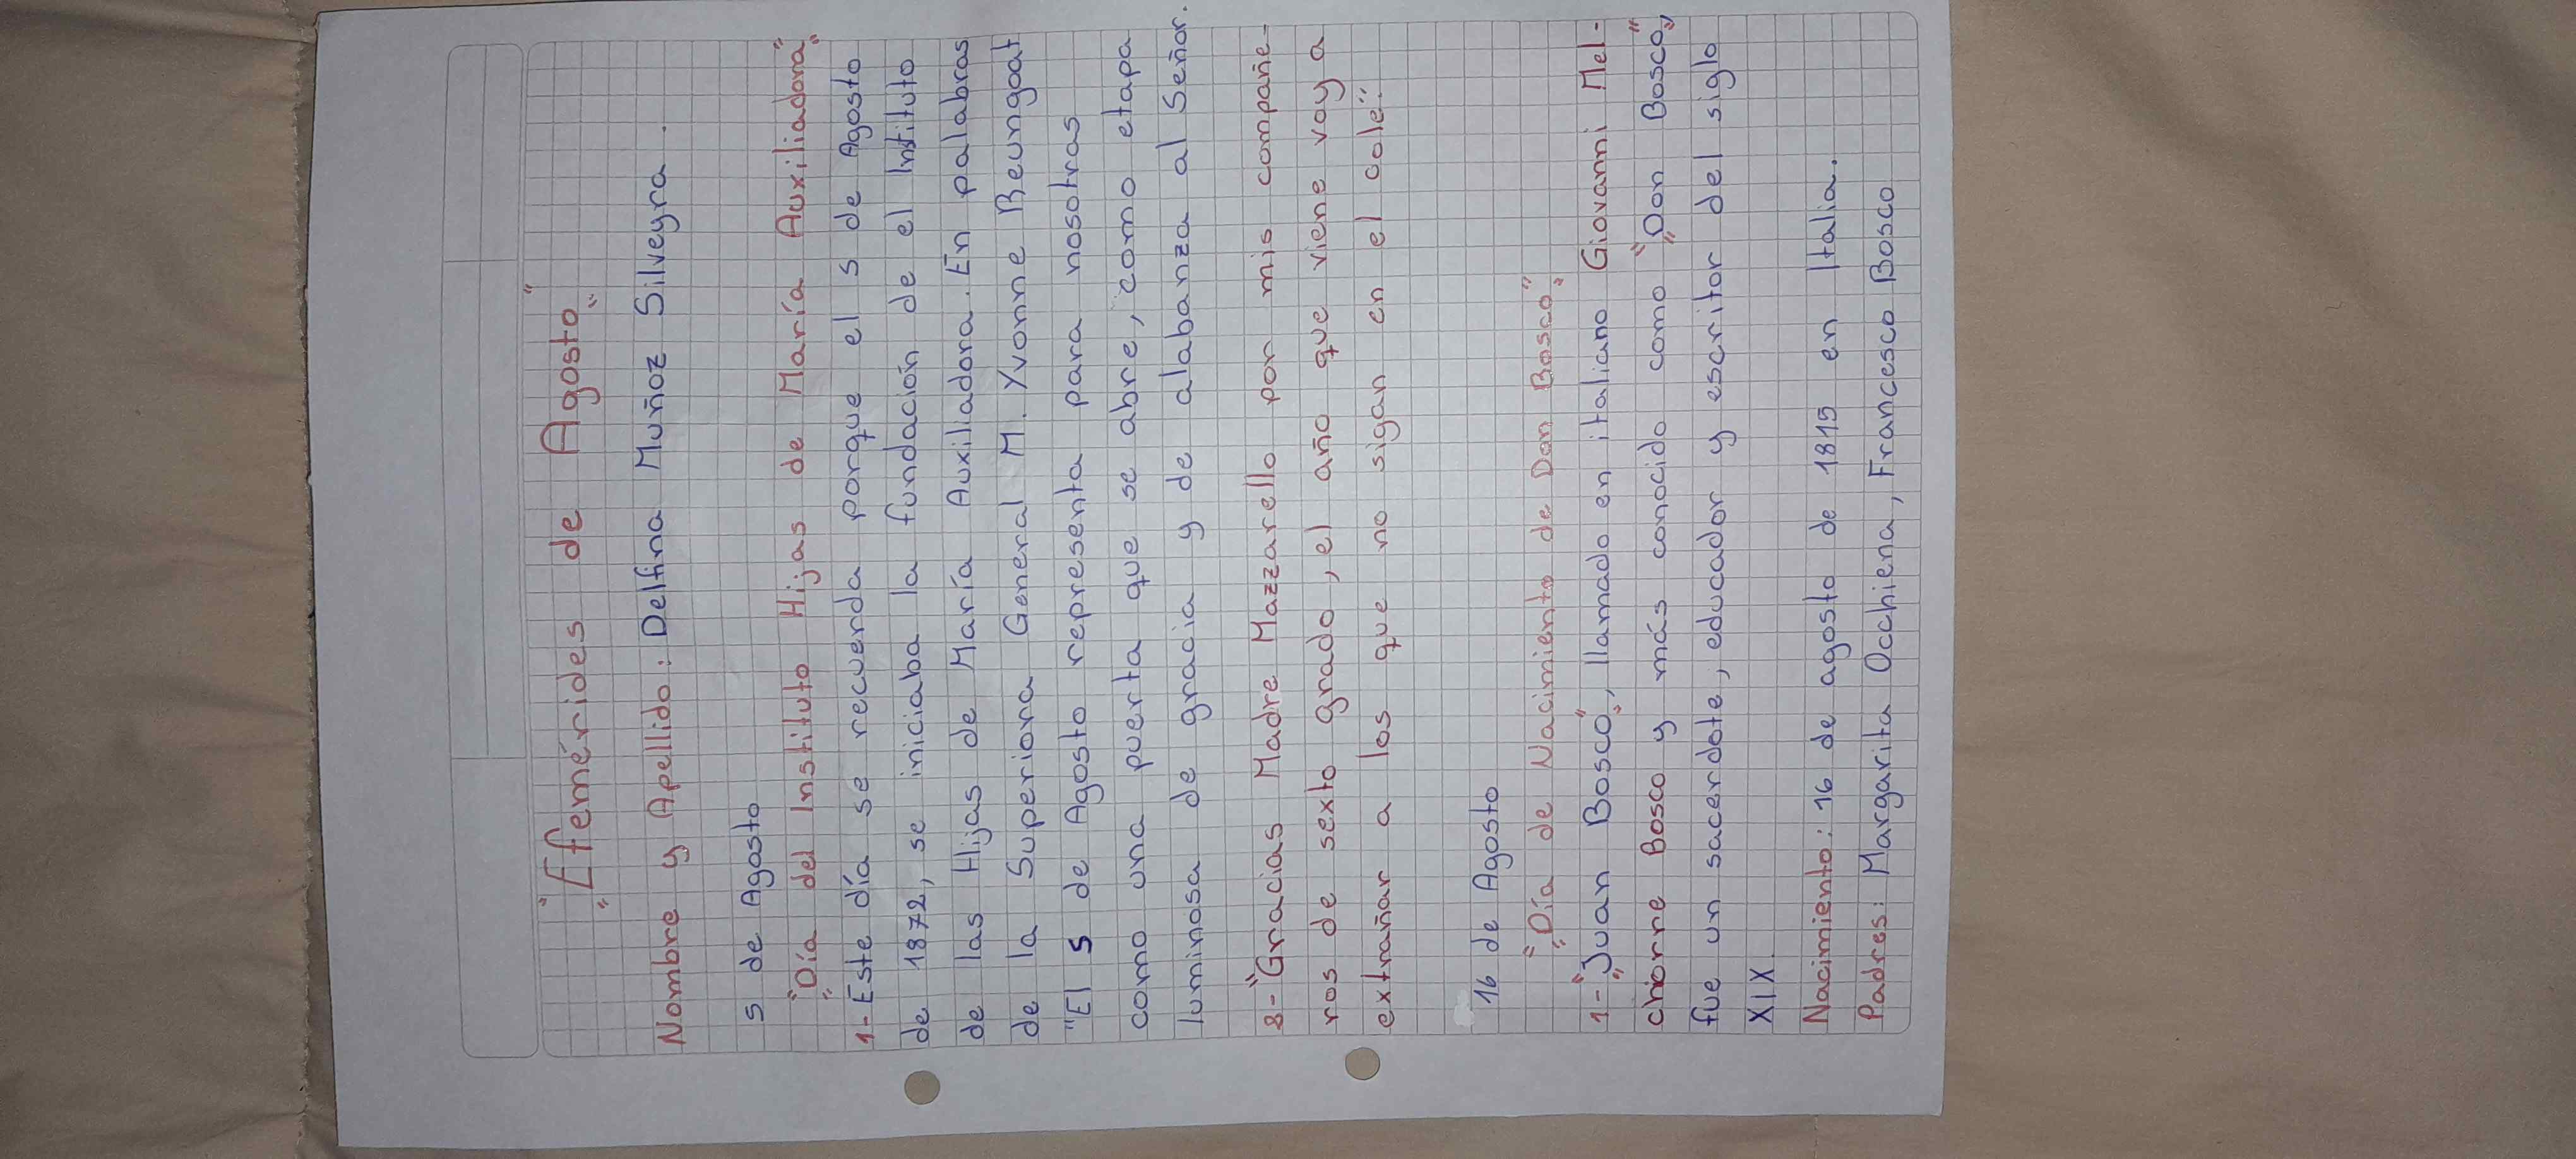 "Efemérides de Agosto"
Nombre y Apellido: Delfina Muñoz Silveyra.
5 de Agosto
"Día del Instituto Hijas de María Auxiliadora"
1- Este día se recuerda porque el 5 de Agosto
de 1872, se iniciaba la fundación de el Instituto
de las Hijas de María Auxiliadora. En palabras
de la Superiora General M. Yvonne Reungoat
"El 5 de Agosto representa para nosotras
como una puerta que se abre, como etapa
luminosa de gracia y de alabanza al Señor.
8- "Gracias Madre Mazzarello por mis compañe-
ros de sexto grado, el año que viene voy a
extrañar a los que no sigan en el cole".
16 de Agosto
"Día de Nacimiento de Don Bosco"
1- "Juan Bosco", llamado en italiano Giovanni Mel-
chiorre Bosco y más conocido como "Don Bosco",
fue un sacerdote, educador y escritor del siglo
XIX.
Nacimiento: 16 de agosto de 1815 en Italia.
Padres: Margarita Occhiena, Francesco Bosco